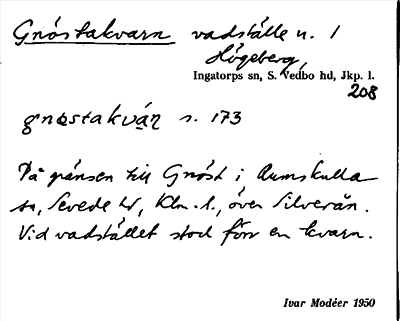 Gnöstakvarn vadställe n. 1
Högeberg,
Ingatorps sn, S. Vedbo hd, Jkp. l.
208
gnøstakvár̥n s. 173
På gränsen till Gnöst i Aumskulla
sn, Sevede hd, Klm. l., över Silverån.
Vid vadstället stod förr en kvarn.
Ivar Modéer 1950